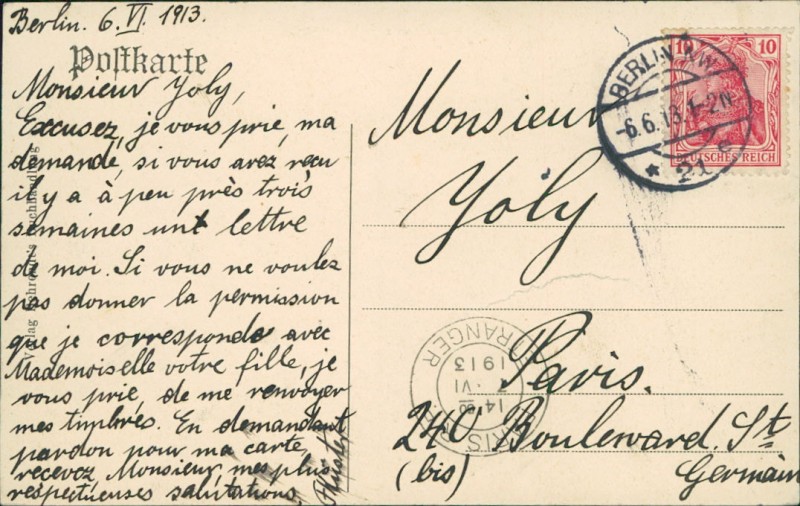 Berlin. 6. VI. 1913.
Postkarte
Monsieur Yoly,
Excusez, je vous prie, ma
demande, si vous avez reçu
il y a à peu près trois
semaines unt lettre
de moi. Si vous ne voulez
pas donner la permission
que je corresponde avec
Mademoiselle votre fille, je
vous prie, de me renvoyer
mes timbres. En demandant
pardon pour ma carte,
recevez, Monsieur, mes plus
respectueuses salutations.
Verlag
Monsieur
Yoly
Paris.
240 Bouleward. St
(bis) Germain
10 10
DEUTSCHES REICH
BERLIN NW
-6.6.13.1-2N
* 21 e
PARIS
ETRANGER
14 30
VI
1913